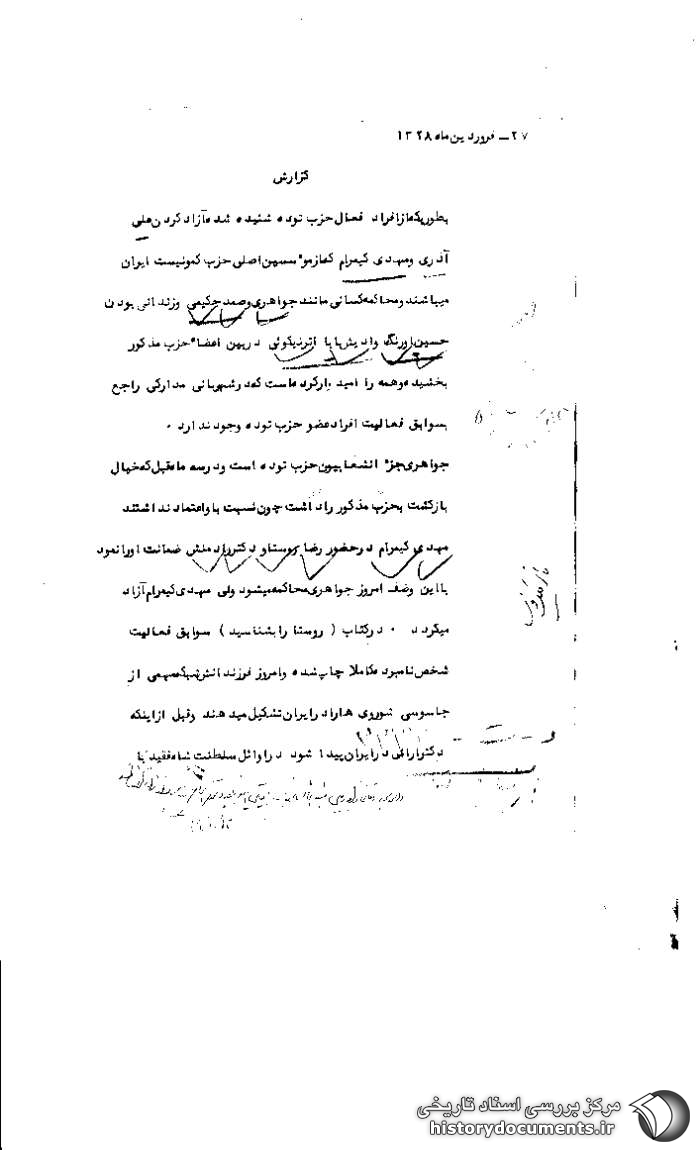 ۲۷ـ فروردین ماه ۱۳۲۸
گزارش
بطوریکه از افراد فعال حزب توده شنیده شده آزاد کردن علی
آذری و مهدی کیمرام که از موسسین اصلی حزب کمونیست ایران
میباشند و محاکمه کسانی مانند جواهری و صمد حکیمی و زندانی بودن
حسین اورنگ و ادیش با با اثر نیکوئی در بین اعضاء حزب مذکور
بخشیده و همه را امید وار کرده است که در شهربانی مدارکی راجع
بسوابق فعالیت افراد عضو حزب توده وجود ندارد ۰
جواهری جزء انشعابیون حزب توده است و در سه ماه قبل که خیال
بازگشت بحزب مذکور را داشت چون نسبت باو اعتماد نداشتند
مهدی کیمرام در حضور رضا روستا و دکتر رادمنش ضمانت او را نمود
با این وضف امروز جواهری محاکمه میشود ولی مهدی کیمرام آزاد
میگردد ۰ در کتاب ( روستا را بشناسید ) سوابق فعالیت
شخص نامبرده کاملا چاپ شده و امروز فرزندانش شبکه مهمی از
جاسوسی شوروی ها را در ایران تشکیل میدهند و قبل از اینکه
دکتر ارانی در ایران پیدا شود در اوائل سلطنت شاه فقید با
مرکز بررسی اسناد تاریخی
historydocuments.ir